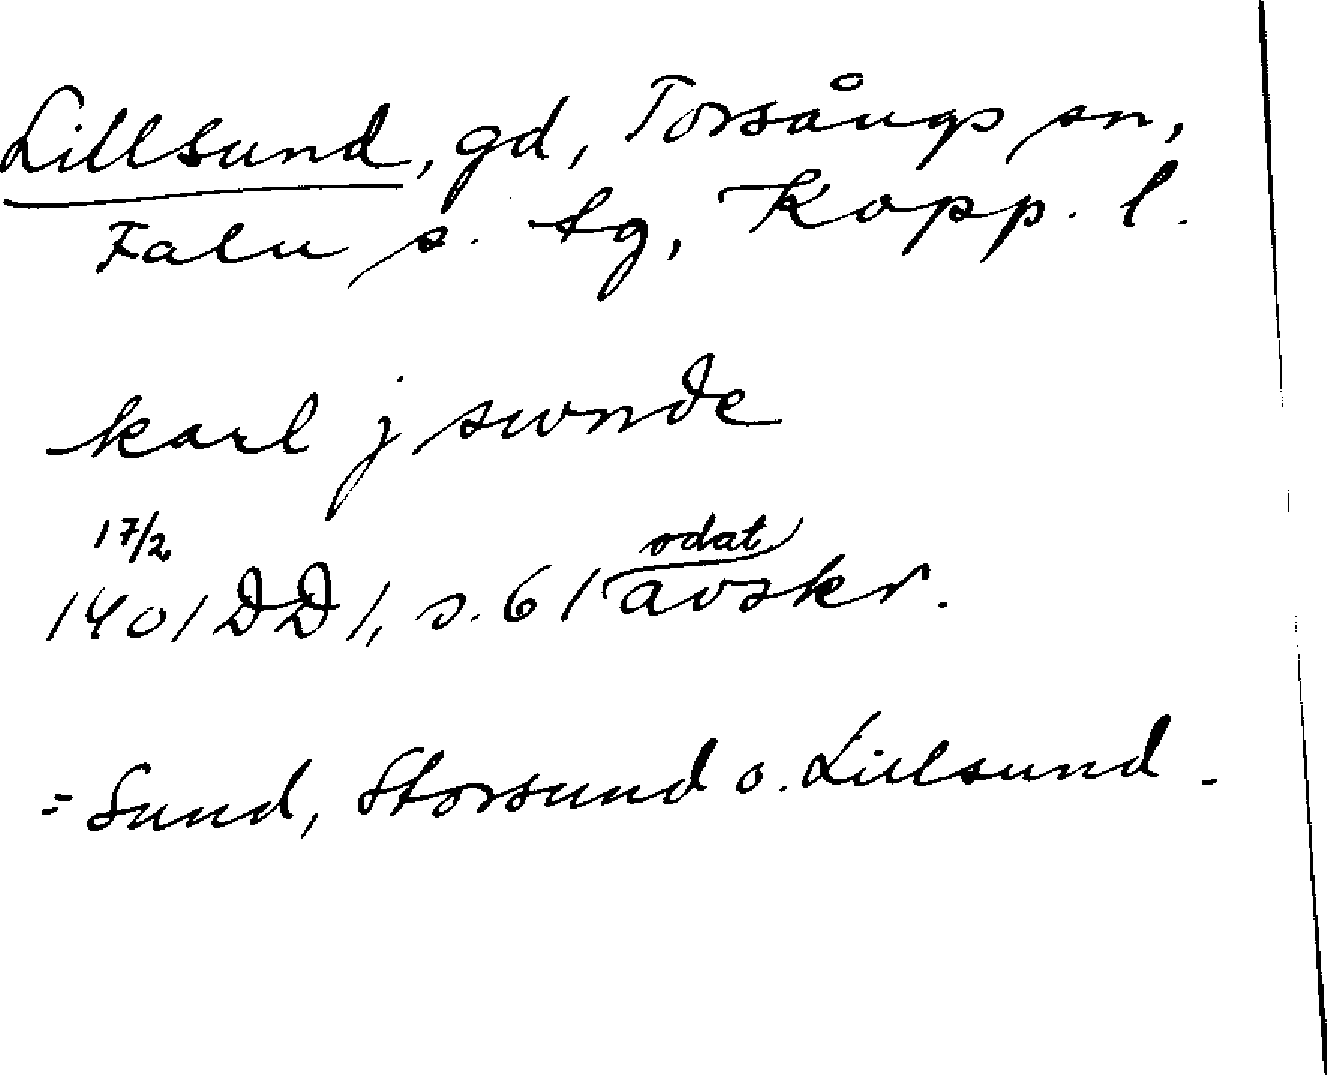 Lillsund, gd, Torsångs sn,
Falu s. tg, Kopp. l.
karl j swnde
17/2 odat
1401 DD 1, s. 61 avskr.
= Sund, Storsund o. Lillsund.